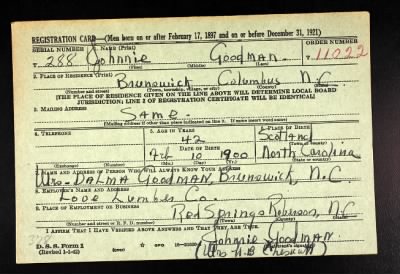 REGISTRATION CARD—(Men born on or after February 17, 1897 and on or before December 31, 1921)
SERIAL NUMBER 1. NAME (Print) ORDER NUMBER
T 288 Johnnie Goodman 11022
(First) (Middle) (Last)
2. PLACE OF RESIDENCE (Print)
Brunswick Columbus N.C
(Number and street) (Town, township, village, or city) (County) (State)
[THE PLACE OF RESIDENCE GIVEN ON THE LINE ABOVE WILL DETERMINE LOCAL BOARD
JURISDICTION; LINE 2 OF REGISTRATION CERTIFICATE WILL BE IDENTICAL]
3. MAILING ADDRESS
Same.
[Mailing address if other than place indicated on line 2. If same insert word same]
4. TELEPHONE 5. AGE IN YEARS 6. PLACE OF BIRTH
42 Scotland
DATE OF BIRTH (Town or county)
Feb 10 1900 North Carolina
(Exchange) (Number) (Mo.) (Day) (Yr.) (State or country)
7. NAME AND ADDRESS OF PERSON WHO WILL ALWAYS KNOW YOUR ADDRESS
Mrs. DALMA Goodman, Brunswick, N.C
8. EMPLOYER'S NAME AND ADDRESS
Lumber Co.
9. PLACE OF EMPLOYMENT OR BUSINESS
Red Springs Robeson, N.C
(Number and street or R. F. D. number) (Town) (County) (State)
I AFFIRM THAT I HAVE VERIFIED ABOVE ANSWERS AND THAT THEY ARE TRUE.
D. S. S. Form 1 (over) Johnnie Goodman
(Revised 1-1-42) (Mrs H.B.